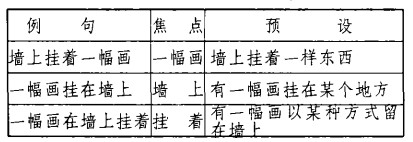 例 句 焦 点 预 设
墙上挂着一幅画 一幅画 墙上挂着一样东西
一幅画挂在墙上 墙 上 有一幅画挂在某个地方
一幅画在墙上挂着 挂 着 有一幅画以某种方式留
在墙上